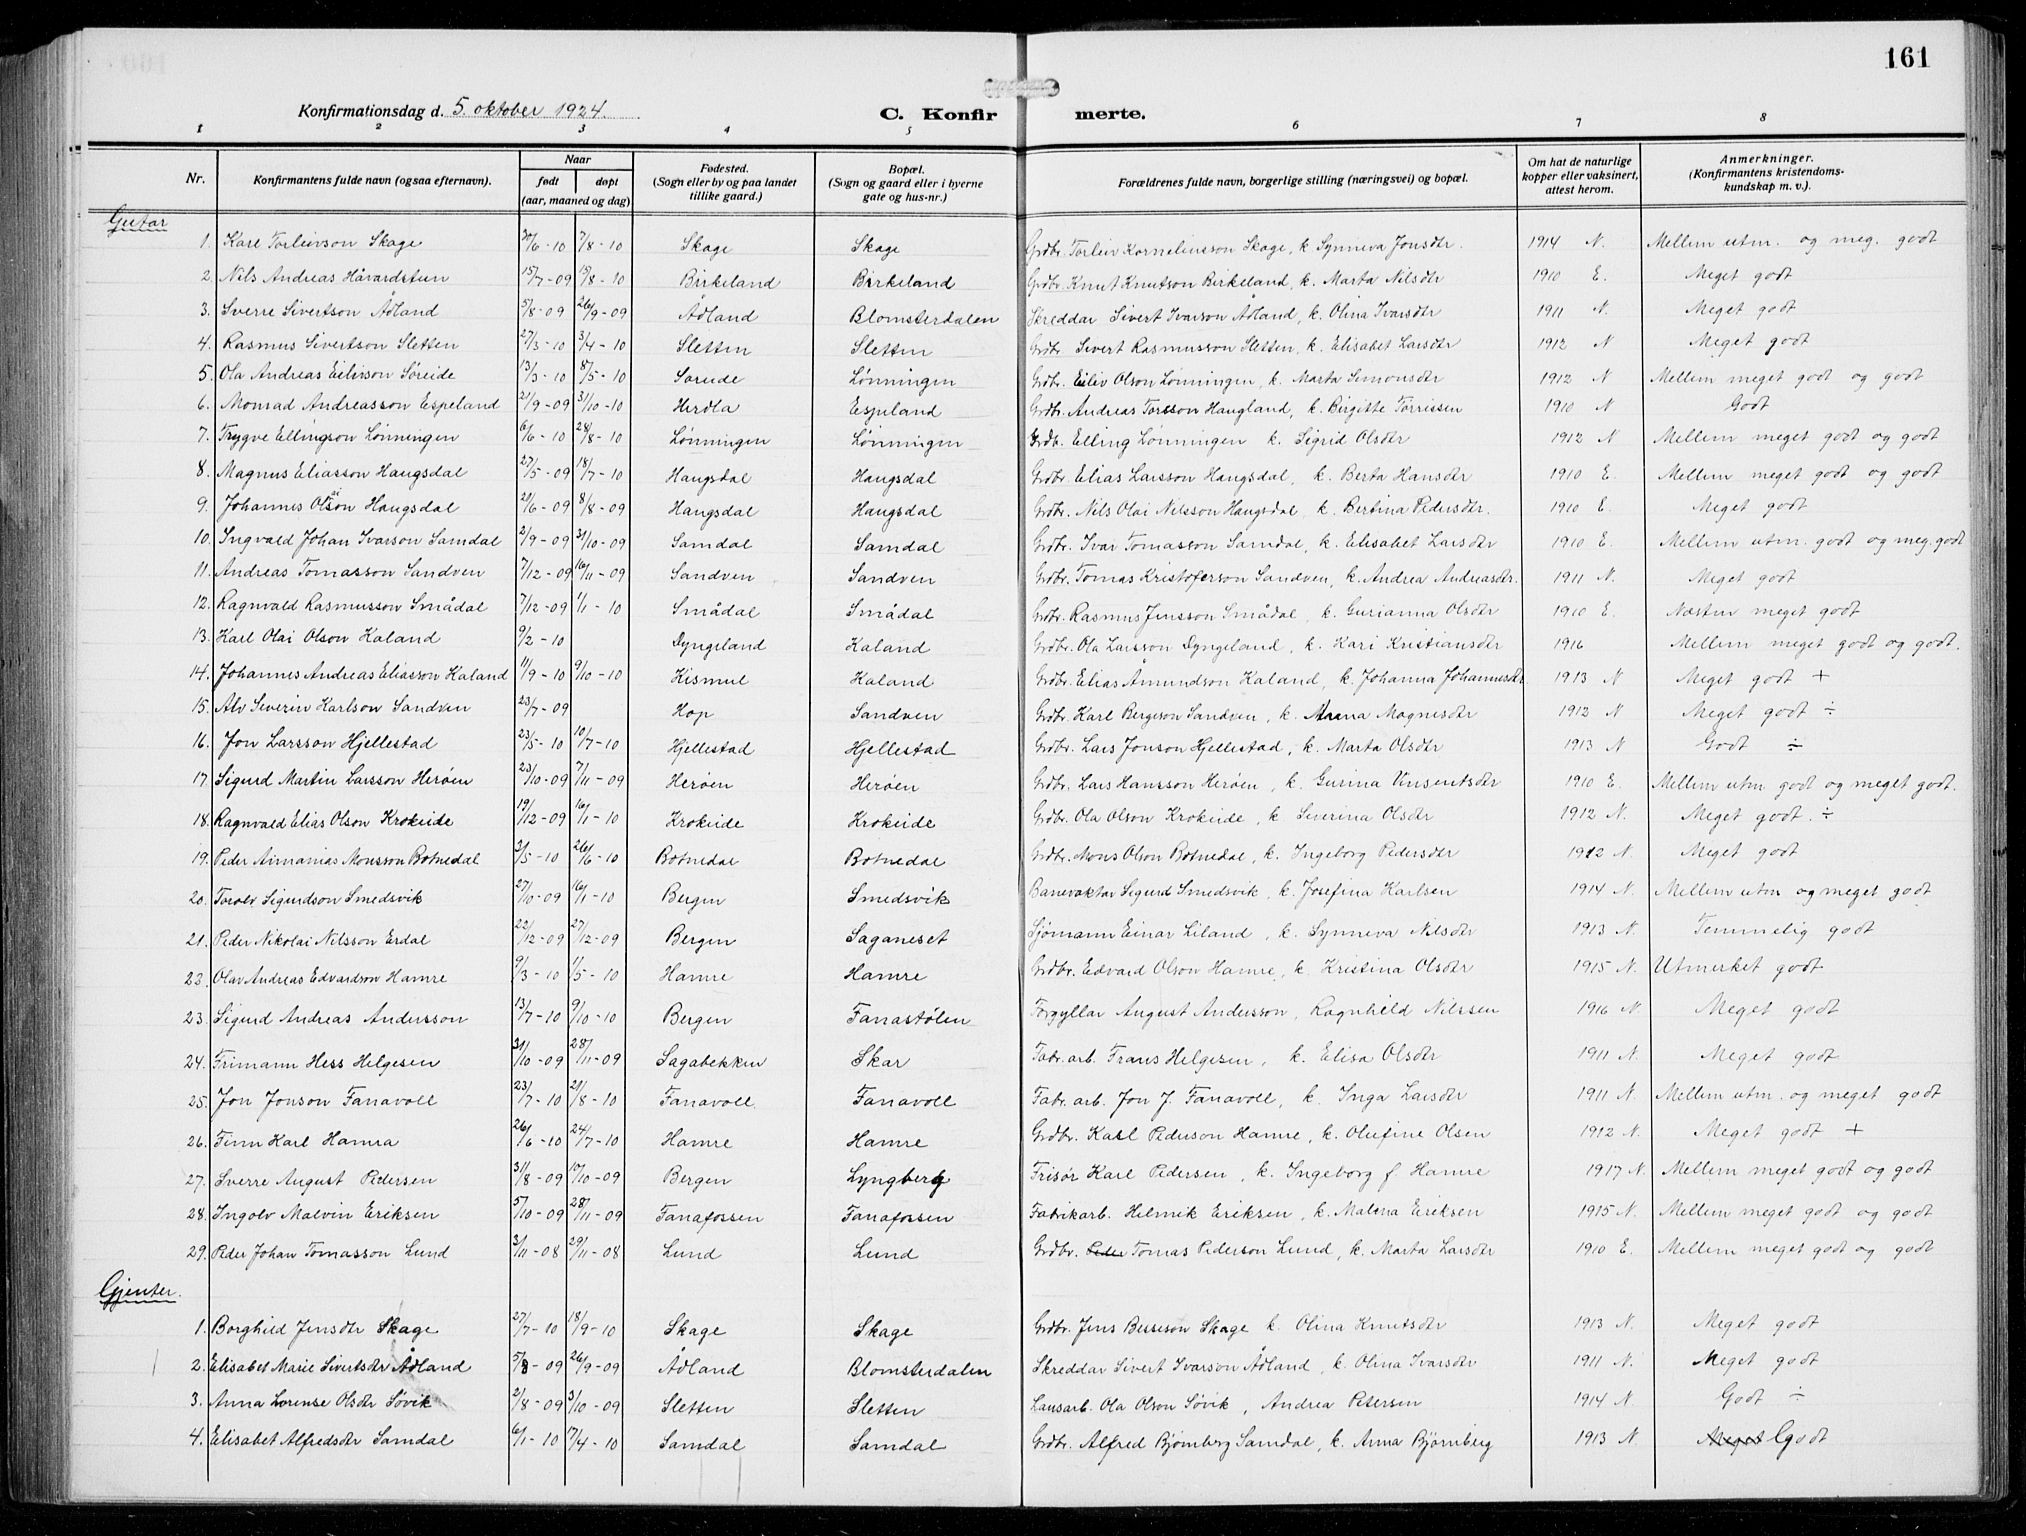 161
Konfirmationsdag d. 5. oktober 1924.
C. Konfir merte.
1 2 3 4 5 6 7 8
Nr. Konfirmantens fulde navn (ogsaa efternavn). Naar født døpt (aar, maaned og dag) Fødested. (Sogn eller by og paa landet tillike gaard.) Bopæl. (Sogn og gaard eller i byerne gate og hus-nr.) Forældrenes fulde navn, borgerlige stilling (næringsvei) og bopæl. Om hat de naturlige kopper eller vaksinert, attest herom. Anmerkninger. (Konfirmantens kristendoms-kundskap m. v.)
Gutar
1. Karl Torleivson Skage 30/6-10 7/8-10 Skage Skage Grdbr. Torleiv Korneliusson Skage, k. Synneva Jonsdtr. 1914 N. Mellem utm. og meg. godt
2. Nils Andreas Håvardstun 15/7-09 15/8-10 Birkeland Birkeland Grdbr. Knut Knutson Birkeland, k. Marta Nilsdtr 1910 E. Meget godt
3. Sverre Sivertson Ådland 5/8-09 26/9-09 Ådland Blomsterdalen Skreddar Sivert Ivarson Ådland, k. Olina Ivarsdtr 1911 N. Meget godt
4. Rasmus Sivertson Sletten 27/3-10 3/4-10 Sletten Sletten Grdbr. Sivert Rasmusson Sletten, k. Elisabet Larsdtr 1912 N Meget godt
5. Ola Andreas Eilivson Søreide 13/3-10 8/5-10 Søreide Lønningen Grdbr. Eiliv Olson Lønningen, k. Marta Simonsdtr 1912 N Mellem meget godt og godt
6. Monrad Andreasson Espeland 21/9-09 31/10-10 Herdla Espeland Grdbr. Andreas Torsson Haugland, k. Birgitte Tørrissen 1910 N Godt
7. Trygve Ellingson Lønningen 6/6-10 28/8-10 Lønningen Lønningen Grdb. Elling Lønningen k. Sigrid Olsdtr 1912 N Mellem meget godt og godt
8. Magnus Eliasson Haugsdal 27/5-09 18/7-10 Haugsdal Haugsdal Grdbr. Elias Larsson Haugsdal, k. Berta Hansdtr 1910 E. Mellem meget godt og godt
9. Johannes Olson Haugsdal 20/6-09 8/8-09 Haugsdal Haugsdal Grdbr. Nils Olai Nilsson Haugsdal, k. Bertina Pedersdtr. 1910 E. Meget godt
10. Ingvald Johan Ivarson Samdal 2/9-09 31/10-09 Samdal Samdal Grdbr. Ivar Tomasson Samdal, k. Elisabet Larsdtr 1910 E. Mellem utm. godt og meg. godt
11. Andreas Tomasson Sandven 7/12-09 16/11-09 Sandven Sandven Grdbr. Tomas Kristoferson Sandven, k. Andrea Andreasdtr. 1911 N. Meget godt
12. Ragnvald Rasmusson Smådal 7/12-09 1/1-10 Smådal Smådal Grdbr. Rasmus Jensson Smådal, k. Gurianna Olsdtr 1910 E. Næsten meget godt
13. Karl Olai Olson Kaland 9/2-10 Dyngeland Kaland Grdbr. Ola Larsson Dyngeland, k. Kari Kristiansdtr 1916 Mellem meget godt og godt.
14. Johannes Andreas Eliasson Kaland 11/9-10 9/10-10 Kismul Kaland Grdbr. Elias Åmundson Kaland, k. Johanna Johannesdtr. 1913 N Meget godt +
15. Alv Severin Karlson Sandven 23/7-09 Hop Sandven Grdbr. Karl Bergeson Sandven, k. Anna Magnesdtr 1912 N Meget godt ÷
16. Jon Larsson Hjellestad 23/5-10 10/7-10 Hjellestad Hjellestad Grdbr. Lars Jonson Hjellestad, k. Marta Olsdtr 1913 N Godt ÷
17. Sigurd Martin Larsson Herøen 23/10-09 7/11-09 Herøen Herøen Grdbr. Lars Hansson Herøen, k. Gurina Vinsentsdtr 1910 E. Mellem utm godt og meget godt.
18. Ragnvald Elias Olson Krokeide 19/12-09 16/1-10 Krokeide Krokeide Grdbr. Ola Olson Krokeide, k Severina Olsdtr 1912 N. Meget godt. ÷
19. Peder Monsson Botnedal 3/5-10 26/6-10 Botnedal Botnedal Grdbr. Mons Olson Botnedal, k. Ingeborg Pedersdtr 1912 N. Meget godt
20. Torolv Sigurdson Smedsvik 27/10-09 16/1-10 Bergen Smedsvik Banevaktar Sigurd Smedsvik, k. Josefina Karlsen 1914 N. Mellem utm og meget godt
21. Peder Nikolai Nilsson Erdal 22/12-09 27/12-09 Bergen Saganeset Sjømann Einar Liland, k. Synneva Nilsdtr 1913 N. Temmelig godt
22. Olav Andreas Edvardson Hamre 9/3-10 1/5-10 Hamre Hamre Grdbr. Edvard Olson Hamre, k. Kristina Olsdtr 1915 N. Utmerket godt
23. Sigurd Andreas Andersson 13/7-10 9/10-10 Bergen Fanastølen Forgyllar August Andersson, Ragnhild Nilssen 1916 N. Meget godt
24. Frimann Hess Helgesen 31/10-09 28/11-09 Sagabekken Skar Fabr. arb. Frans Helgesen, k. Elisa Olsdtr 1911 N. Meget godt
25. Jon Jonson Fanavoll 23/7-10 21/8-10 Fanavoll Fanavoll Fabr. arb. Jon J. Fanavoll, k. Inga Larsdtr 1911 N. Mellem utm. og meget godt
26. Finn Karl Hamra 26/6-10 24/7-10 Hamre Hamre Grdbr. Karl Pederson Hamre, k. Olufine Olsen 1912 N. Meget godt +
27. Sverre August Pedersen 31/8-09 10/10-09 Bergen Lyngberg Frisør Karl Pedersen, k. Ingeborg f. Hamre 1917 N. Mellem meget godt og godt
28. Ingolv Malvin Eriksen 5/10-09 28/11-09 Fanafossen Fanafossen Fabrikarb. Helmik Eriksen, k. Malena Eriksen 1915 N. Mellem meget godt og godt
29. Peder Johan Tomasson Lund 3/11-08 29/11-08 Lund Lund Grdbr. Peder Tomas Pederson Lund, k. Marta Larsdtr 1910 E. Mellem meget godt og godt
Gjenter.
1. Borghild Jensdtr Skage 27/7-10 18/9-10 Skage Skage Grdbr. Jens Besseson Skage k. Olina Knutsdtr 1913 N. Meget godt
2. Elisabet Marie Sivertsdtr Ådland 5/8-09 26/9-09 Ådland Blomsterdalen Skreddar Sivert Ivarson Ådland, k. Olina Ivarsdtr 1911 N. Meget godt
3. Anna Lorense Olsdtr Søvik 2/8-09 3/10-09 Sletten Sletten Lausarb. Ola Olson Søvik, Andrea Petersen 1914 N. Godt ÷
4. Elisabet Alfredsdtr Samdal 6/1-10 17/4-10 Samdal Samdal Grdbr. Alfred Bjørnberg Samdal, k. Anna Bjørnberg 1913 N. Meget Godt